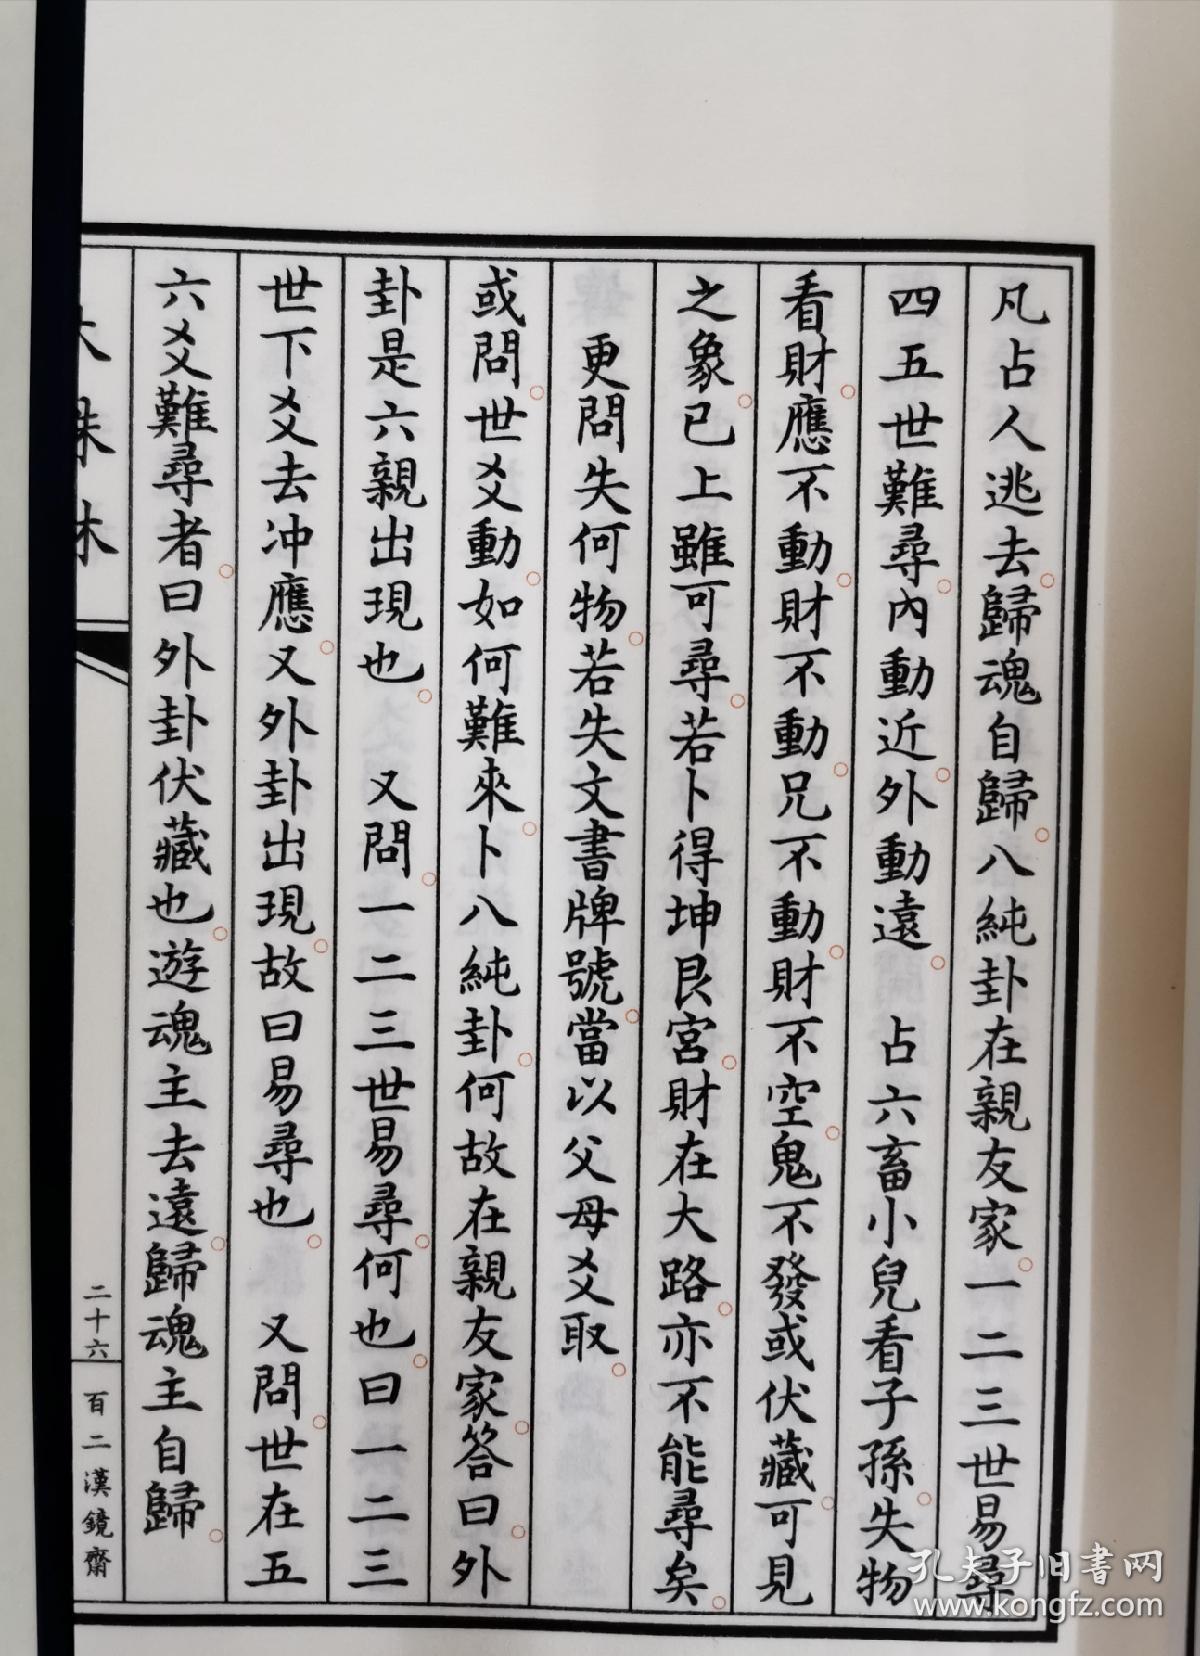 凡占人逃去。歸魂自歸。八純卦在親友家。一二三世易尋
四五世難尋。內動近。外動遠。　占六畜小兒看子孫。失物
看財。應不動。財不動。兄不動。財不空。鬼不發或伏藏。可見
之象。已上雖可尋。若卜得坤艮宮。財在大路。亦不能尋矣。
更問失何物。若失文書牌號。當以父母爻取。
或問。世爻動。如何難來。卜八純卦。何故在親友家。答曰。外
卦是六親出現也。　又問。一二三世易尋。何也。曰一二三
世下爻去冲應。又外卦出現。故曰易尋也。　又問。世在五
六爻難尋者。曰外卦伏藏也。遊魂主去遠。歸魂主自歸。
林
二十六
百二漢鏡齋
孔夫子旧书网
www.kongfz.com